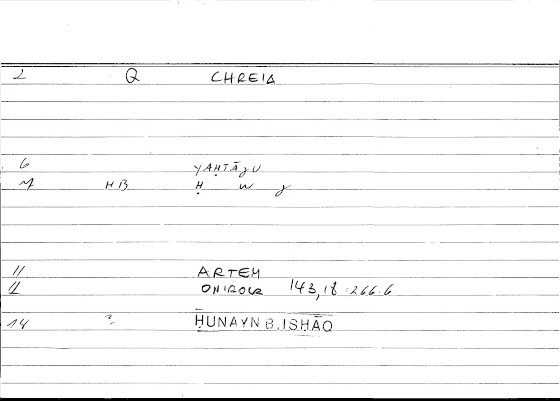 2 Q CHREIA
6 YAḤTĀǧU
HB Ḥ W ǧ
11 ARTEM
11 ONIROCR 143,18:266.6
14 ? ḤUNAYN B. ISḤĀQ